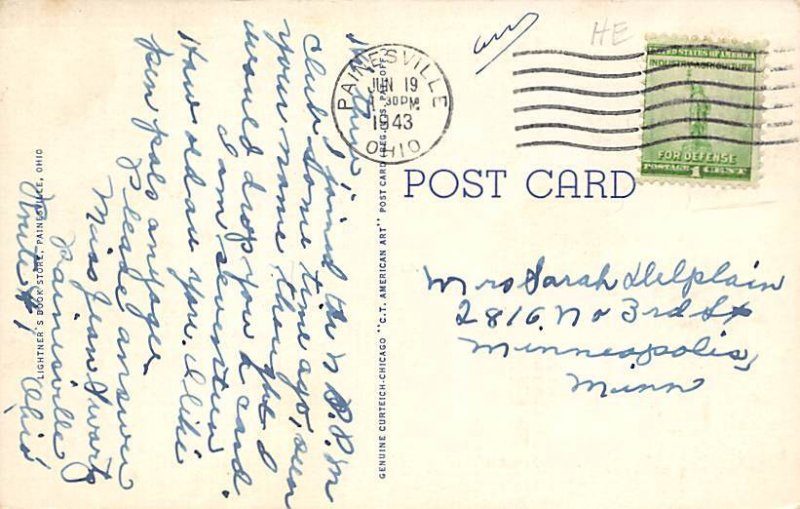 Hi there
I joined the S.P.M
Club some time ago, seen
your name thought I
would drop you a card.
I am seventeen
How old au you. I like
pen pals anyage.
Please answer
Miss Jean Swartz
Painesville
Route #1 Ohio
LIGHTNER'S BOOK STORE, PAINESVILLE, OHIO
GENUINE CURTEICH-CHICAGO "C.T. AMERICAN ART" POST CARD (REG. U.S. PAT. OFF.)
PAINESVILLE
JUN 19
1 30 PM
1943
OHIO
HE
UNITED STATES OF AMERICA
INDUSTRY AGRICULTURE
FOR DEFENSE
POSTAGE 1 CENT
POST CARD
Mrs Sarah Delplain
2816 No 3rd St
Minneapolis,
Minn